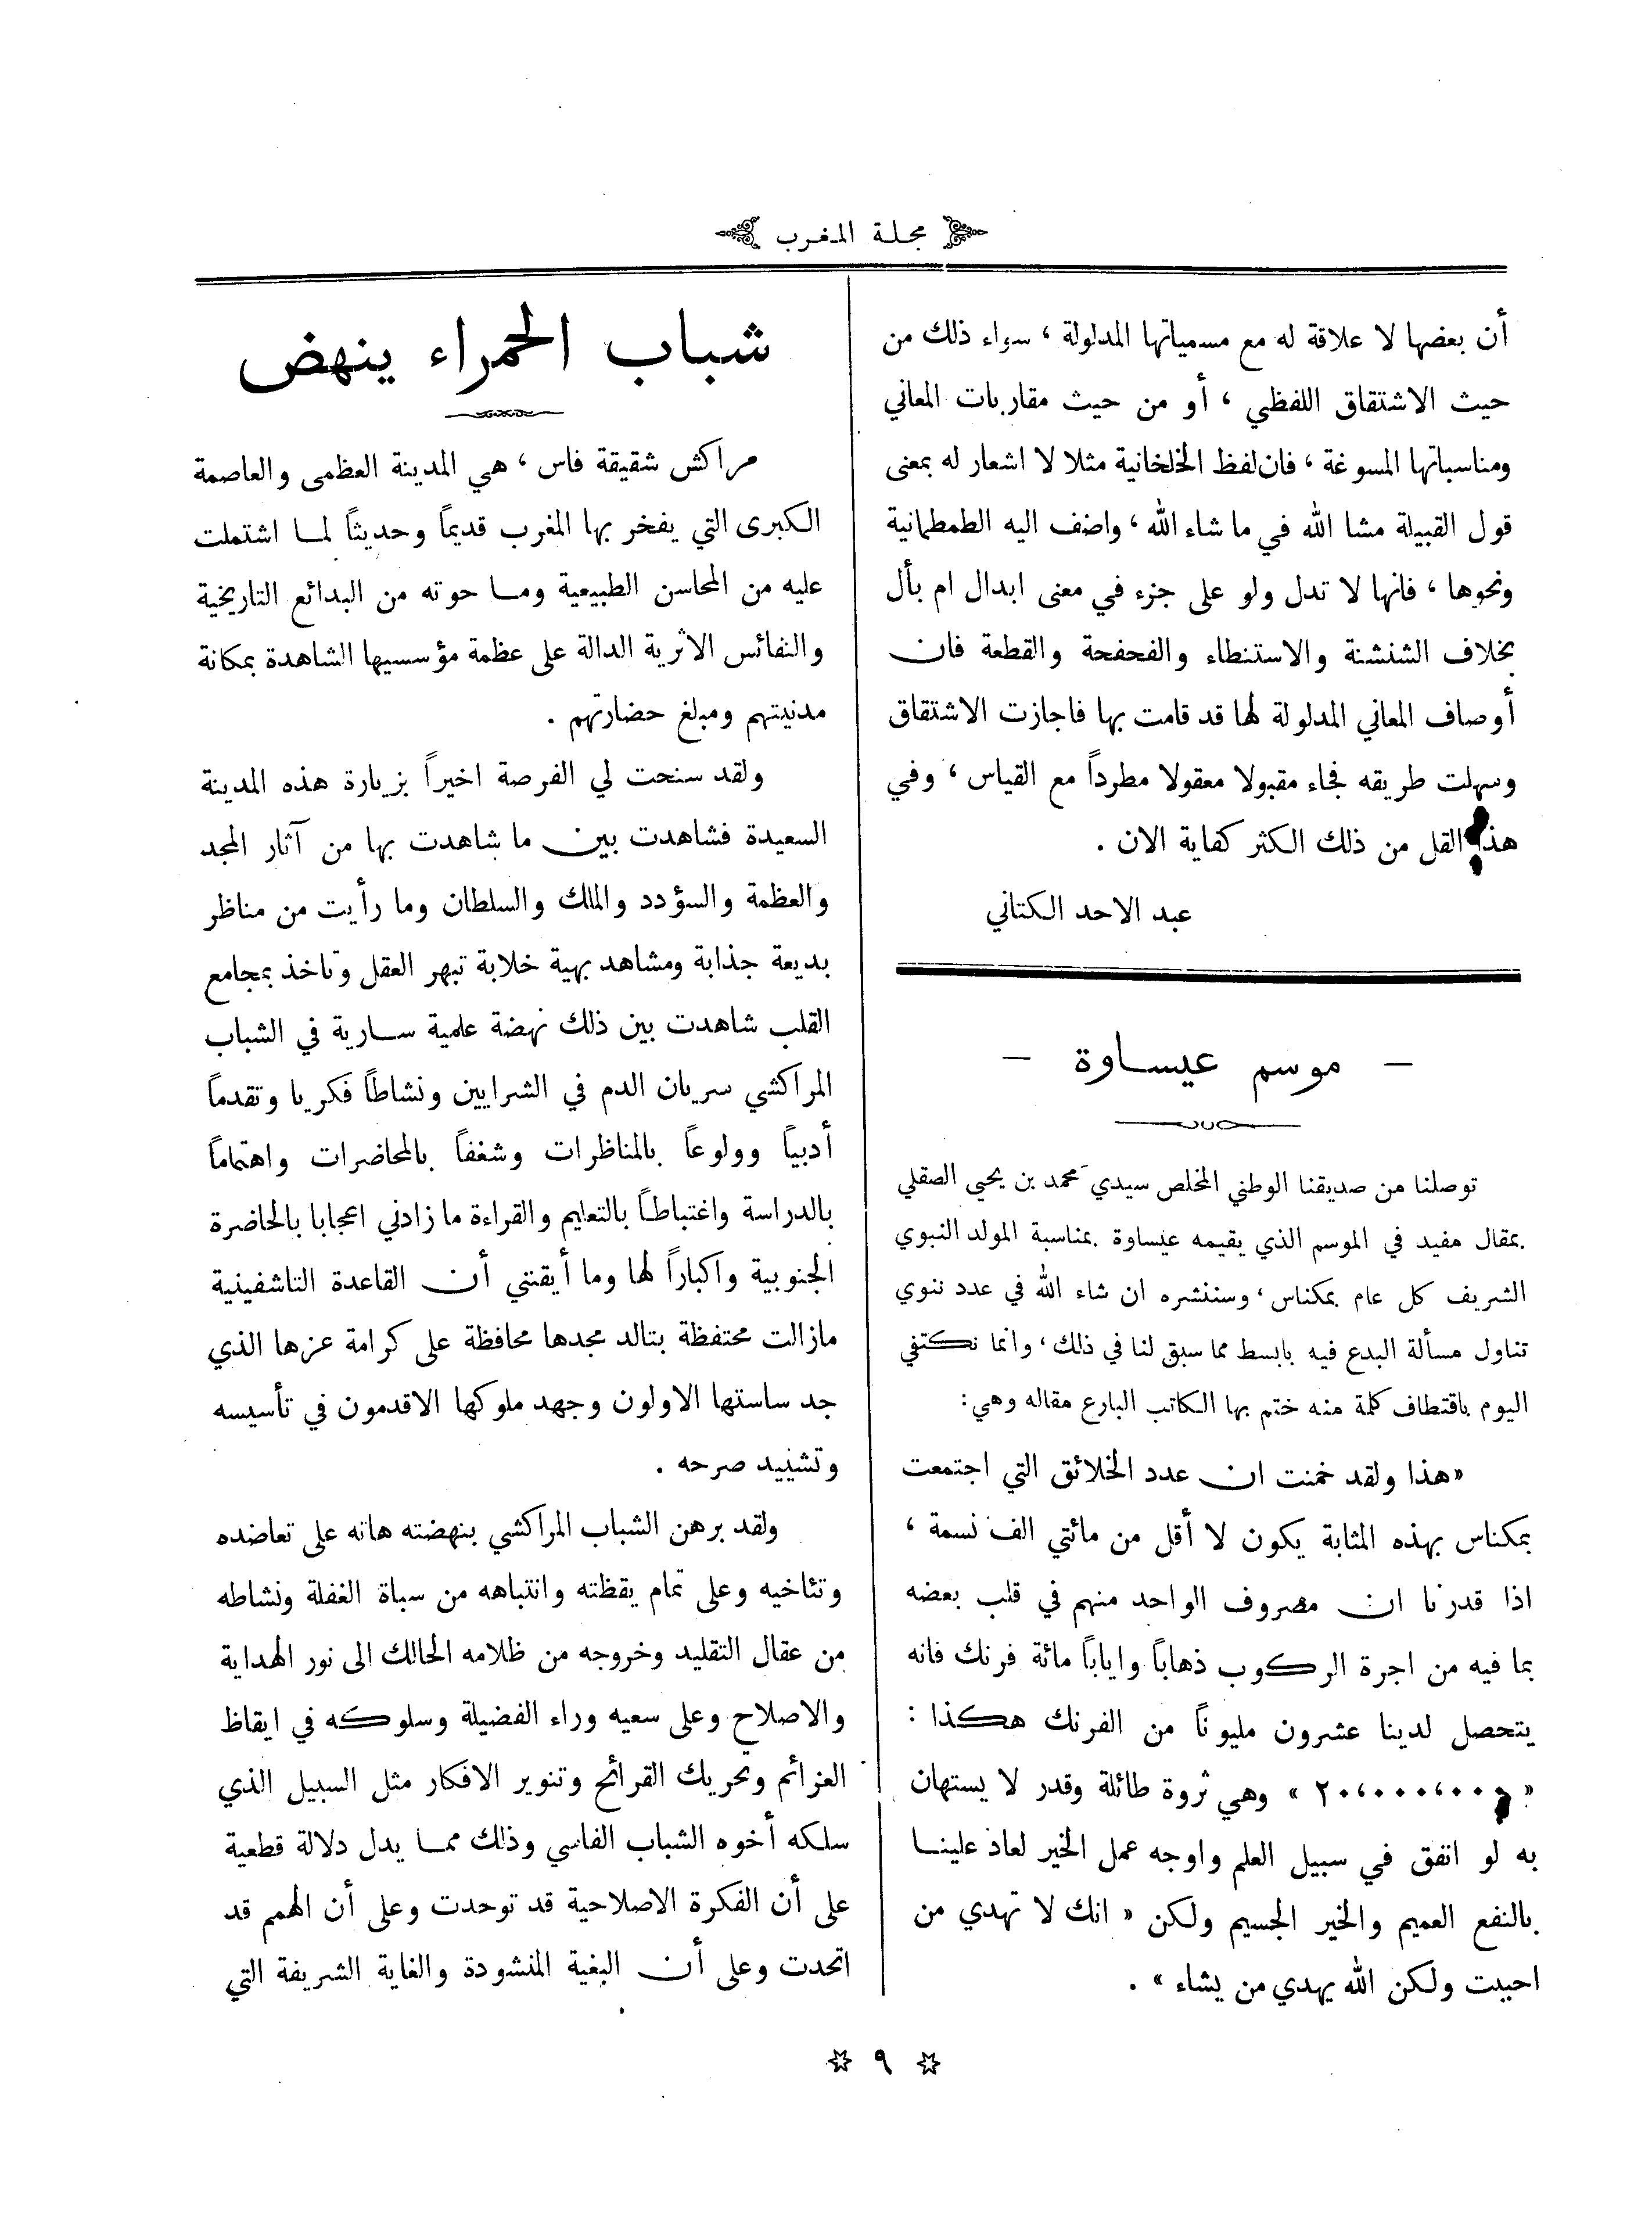 مجلة المغرب
أن بعضها لا علاقة له مع مسمياتها المدلولة ، سواء ذلك من
حيث الاشتقاق اللفظي ، أو من حيث مقاربات المعاني
ومناسباتها المسوغة ، فان لفظ الخلخانية مثلا لا اشعار له بمعنى
قول القبيلة مشا الله في ما شاء الله ، واضف اليه الطمطمانية
ونحوها ، فانها لا تدل ولو على جزء في معنى ابدال ام بأل
بخلاف الشنشنة والاستنطاء والفحفحة والقطعة فان
أوصاف المعاني المدلولة لها قد قامت بها فاجازت الاشتقاق
وسهلت طريقه فجاء مقبولا معقولا مطرداً مع القياس ، وفي
هذا القل من ذلك الكثر كفاية الان .
عبد الاحد الكتاني
— موسم عيساوة —
توصلنا من صديقنا الوطني المخلص سيدي محمد بن يحيى الصقلي
بمقال مفيد في الموسم الذي يقيمه عيساوة بمناسبة المولد النبوي
الشريف كل عام بمكناس ، وسننشره ان شاء الله في عدد ننوي
تناول مسألة البدع فيه بابسط مما سبق لنا في ذلك ، وانما نكتفي
اليوم باقتطاف كلمة منه ختم بها الكاتب البارع مقاله وهي :
«هذا ولقد خمنت ان عدد الخلائق التي اجتمعت
بمكناس بهذه المثابة يكون لا أقل من مائتي الف نسمة ،
اذا قدرنا ان مصروف الواحد منهم في قلب بعضه
بما فيه من اجرة الركوب ذهاباً واياباً مائة فرنك فانه
يتحصل لدينا عشرون مليوناً من الفرنك هكذا :
« ٢٠،٠٠٠،٠٠٠ » وهي ثروة طائلة وقدر لا يستهان
به لو انفق في سبيل العلم واوجه عمل الخير لعاد علينا
بالنفع العميم والخير الجسيم ولكن « انك لا تهدي من
احببت ولكن الله يهدي من يشاء » .
شباب الحمراء ينهض
مراكش شقيقة فاس ، هي المدينة العظمى والعاصمة
الكبرى التي يفخر بها المغرب قديماً وحديثاً لما اشتملت
عليه من المحاسن الطبيعية وما حوته من البدائع التاريخية
والنفائس الاثرية الدالة على عظمة مؤسسيها الشاهدة بمكانة
مدنيتهم ومبلغ حضارتهم .
ولقد سنحت لي الفرصة اخيراً بزيارة هذه المدينة
السعيدة فشاهدت بين ما شاهدت بها من آثار المجد
والعظمة والسؤدد والملك والسلطان وما رأيت من مناظر
بديعة جذابة ومشاهد بهية خلابة تبهر العقل وتاخذ بمجامع
القلب شاهدت بين ذلك نهضة علمية سارية في الشباب
المراكشي سريان الدم في الشرايين ونشاطاً فكريا وتقدماً
أدبياً وولوعاً بالمناظرات وشغفاً بالمحاضرات واهتماماً
بالدراسة واغتباطاً بالتعليم والقراءة ما زادني اعجابا بالحاضرة
الجنوبية واكباراً لها وما أيقنتي أن القاعدة التاشفينية
مازالت محتفظة بتالد مجدها محافظة على كرامة عزها الذي
جد ساستها الاولون وجهد ملوكها الاقدمون في تأسيسه
وتشييد صرحه .
ولقد برهن الشباب المراكشي بنهضته هاته على تعاضده
وتئاخيه وعلى تمام يقظته وانتباهه من سباة الغفلة ونشاطه
من عقال التقليد وخروجه من ظلامه الحالك الى نور الهداية
والاصلاح وعلى سعيه وراء الفضيلة وسلوكه في ايقاظ
العزائم وتحريك القرائح وتنوير الافكار مثل السبيل الذي
سلكه أخوه الشباب الفاسي وذلك مما يدل دلالة قطعية
على أن الفكرة الاصلاحية قد توحدت وعلى أن الهمم قد
اتحدت وعلى أن البغية المنشودة والغاية الشريفة التي
٩